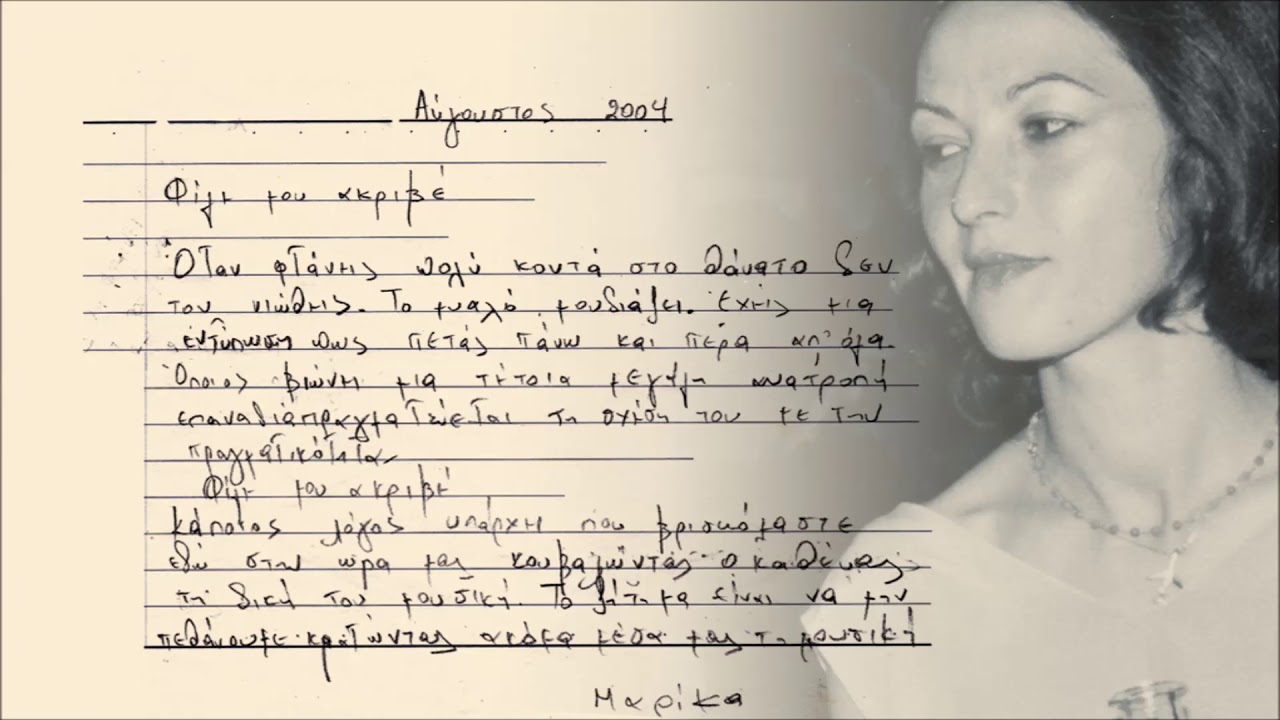 Αύγουστος 2004
Φίλε μου ακριβέ
Όταν φτάνεις πολύ κοντά στο θάνατο δεν
τον νιώθεις. Το μυαλό μουδιάζει. Έχεις μια
εντύπωση πως πετάς πάνω και πέρα απ' όλα.
Όποιος βιώνει μια τέτοια μεγάλη ανατροπή
επαναδιαπραγματεύεται τη σχέση του με την
πραγματικότητα.
Φίλε μου ακριβέ
κάποιος λόγος υπάρχει που βρισκόμαστε
εδώ στην ώρα μας κουβαλώντας ο καθένας
τη δική του μουσική. Το ζήτημα είναι να μην
πεθάνουμε κρατώντας ακόμα μέσα μας τη μουσική
Μαρίκα